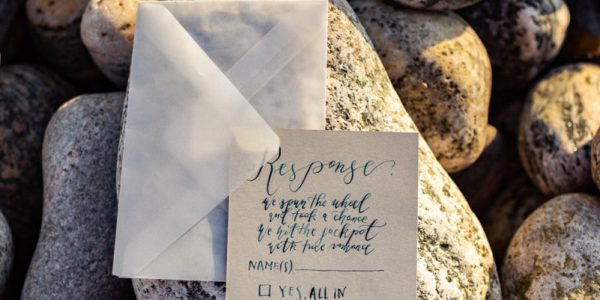 Response?
we spun the wheel
and took a chance
we hit the jackpot
with true romance
NAME(S)
YES, ALL IN